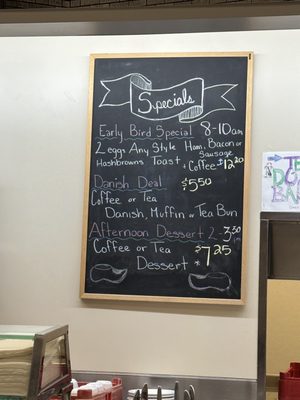 Specials
Early Bird Special 8-10am
2 eggs Any Style Ham, Bacon or
Sausage
Hashbrowns Toast + Coffee $12.20
Danish Deal $5.50
Coffee or Tea
Danish, Muffin or Tea Bun
Afternoon Dessert 2-3:30
pm
Coffee or Tea
Dessert * $7.25